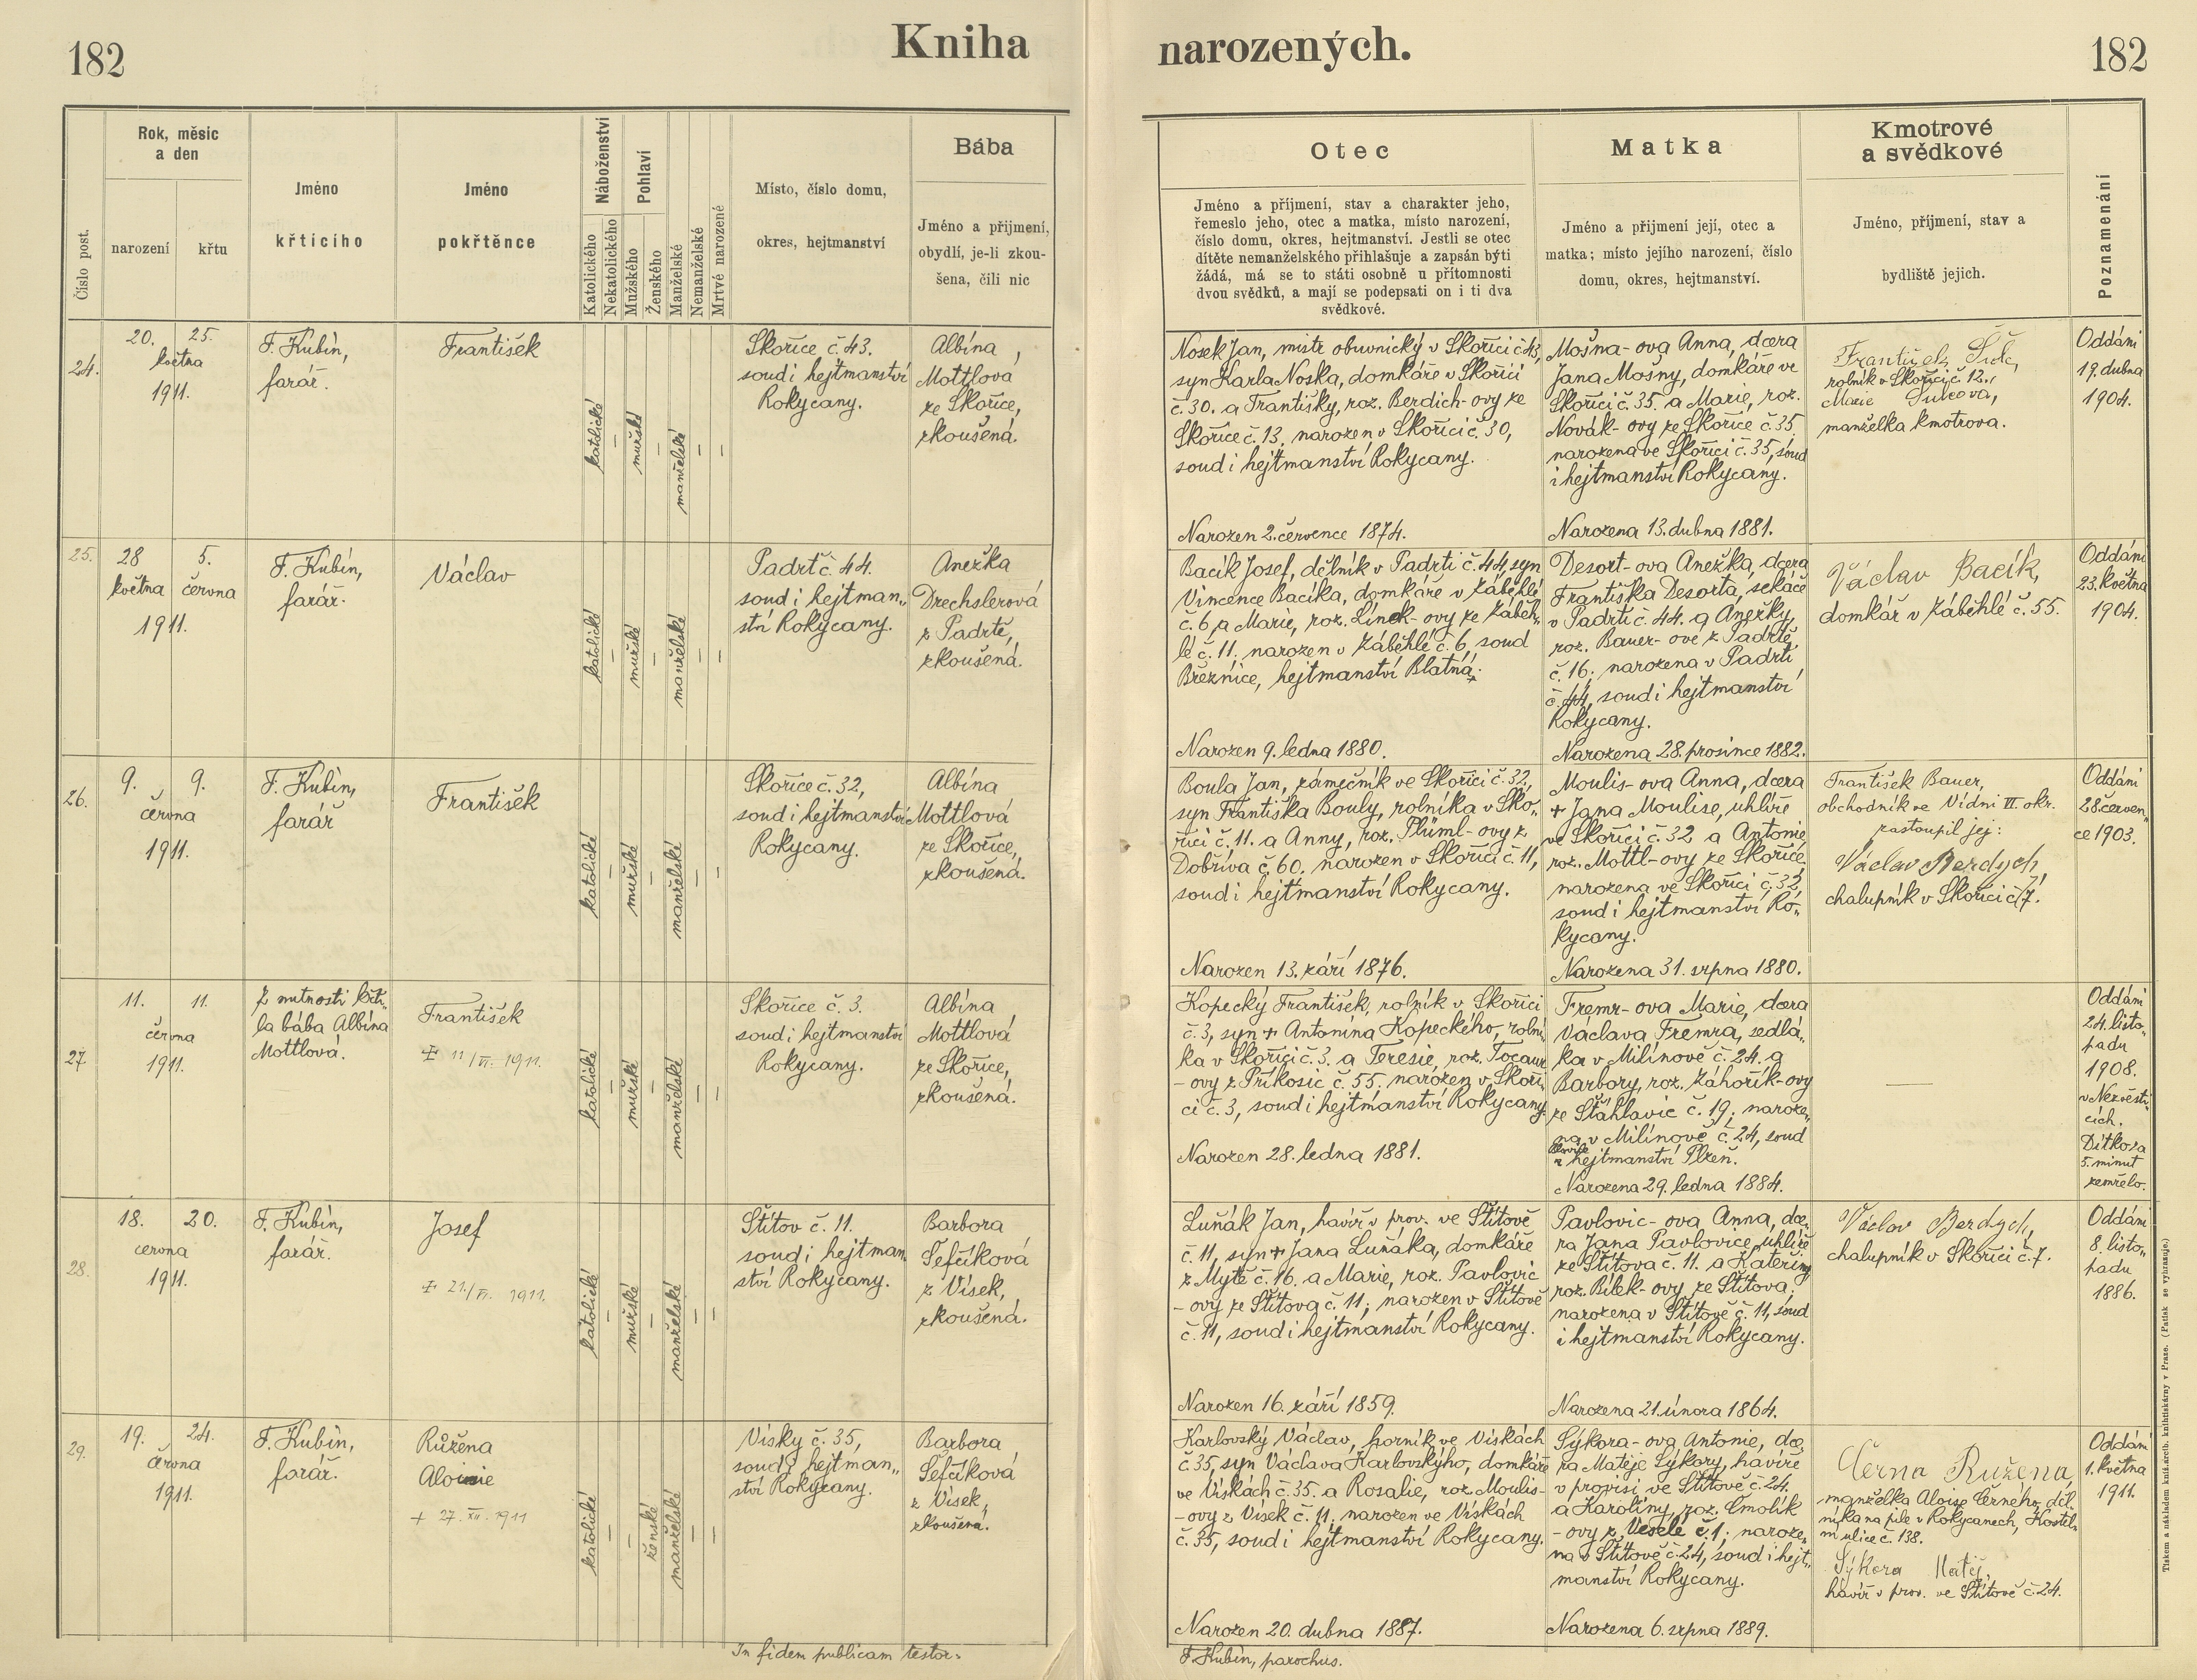 182
Kniha
narozených.
182
Číslo post.
Rok, měsíc
a den
narození
křtu
Jméno
křticího
Jméno
pokřtěnce
Náboženství
Katolického
Nekatolického
Pohlaví
Mužského
Ženského
Manželské
Nemanželské
Mrtvě narozené
Místo, číslo domu,
okres, hejtmanství
Bába
Jméno a přijmení,
obydlí, je-li zkou-
šena, čili nic
Otec
Jméno a příjmení, stav a charakter jeho,
řemeslo jeho, otec a matka, místo narození,
číslo domu, okres, hejtmanství. Jestli se otec
dítěte nemanželského přihlašuje a zapsán býti
žádá, má se to státi osobně u přítomnosti
dvou svědků, a mají se podepsati on i ti dva
svědkové.
Matka
Jméno a přijmení její, otec a
matka; místo jejího narození, číslo
domu, okres, hejtmanství.
Kmotrové
a svědkové
Jméno, příjmení, stav a
bydliště jejich.
Poznamenání
24.
20. 25.
května
1911.
F. Kubín,
farář.
František
katolické
–
mužské
–
manželské
–
–
Skořice č. 43.
soud i hejtmanství
Rokycany.
Albína
Mottlová
ze Skořice,
zkoušená.
Nosek Jan, mistr obuvnický v Skořici č. 43,
syn Karla Noska, domkáře v Skořici
č. 30. a Františky, roz. Berdich-ovy ze
Skořice č. 13. narozen v Skořici č. 30,
soud i hejtmanství Rokycany.
Narozen 2. července 1874.
Mošna-ova Anna, dcera
Jana Mošny, domkáře ve
Skořici č. 35. a Marie, roz.
Novák-ovy ze Skořice č. 35
narozena ve Skořici č. 35, soud
i hejtmanství Rokycany.
Narozena 13. dubna 1881.
František Šulc,
rolník v Skořici č. 12.,
Marie Šulcova,
manželka kmotrova.
Oddáni
19. dubna
1904.
25.
28 5.
května června
1911.
F. Kubín,
farář.
Václav
katolické
–
mužské
–
manželské
–
–
Padrť č. 44.
soud i hejtman„
stní Rokycany.
Anežka
Drechslerová
z Padrtě,
zkoušená.
Bacík Josef, dělník v Padrti č. 44, syn
Vincence Bacíka, domkáře v Záběhlé
č. 6, a Marie, roz. Línek-ovy ze Záběh„
lé č. 11. narozen v Záběhlé č. 6, soud
Březnice, hejtmanství Blatná.
Narozen 9. ledna 1880.
Desort-ova Anežka, dcera
Františka Desorta, sekáče
v Padrti č. 44. a Anežky,
roz. Bauer-ove z Padrtě
č. 16; narozena v Padrti
č. 44, soud i hejtmanství
Rokycany.
Narozena 28. prosince 1882.
Václav Bacík,
domkář v Záběhlé č. 55.
Oddáni
23. května
1904.
26.
9. 9.
června
1911.
F. Kubín,
farář
František
katolické
–
mužské
–
manželské
–
–
Skořice č. 32,
soud i hejtmanství
Rokycany.
Albína
Mottlová
ze Skořice,
zkoušená.
Boula Jan, zámečník ve Skořici č. 32,
syn Františka Bouly, rolníka v Sko„
řici č. 11. a Anny, roz. Plüml-ovy z
Dobříva č. 60. narozen v Skořici č. 11,
soud i hejtmanství Rokycany.
Narozen 13. září 1876.
Moulis-ova Anna, dcera
+ Jana Moulise, uhlíře
ve Skořici č. 32 a Antonie
roz. Mottl-ovy ze Skořice
narozena ve Skořici č. 32,
soud i hejtmanství Ro„
kycany.
Narozena 31. srpna 1880.
František Bauer,
obchodník ve Vídni VI okr.
zastoupil jej:
Václav Berdych,
chalupník v Skořici č. 7.
Oddáni
28. červen„
ce 1903.
27.
11. 11.
června
1911.
Z nutnosti křti„
la bába Albína
Mottlová.
František
‡ 11/VI. 1911.
katolické
–
mužské
–
manželské
–
–
Skořice č. 3.
soud i hejtmanství
Rokycany.
Albína
Mottlová
ze Skořice,
zkoušená.
Kopecký František, rolník v Skořici
č. 3, syn + Antonína Kopeckého, rolní„
ka v Skořici č. 3. a Teresie, roz. Tocaur
-ovy z Příkosic č. 55; narozen v Skoři„
ci č. 3, soud i hejtmanství Rokycany.
Narozen 28. ledna 1881.
Fremr-ova Marie, dcera
Václava Fremra, sedlá„
ka v Milínově č. 24. a
Barbory, roz. Záhořík-ovy
ze Šťáhlavic č. 19; naroze„
na v Milínově č. 24, soud
hejtmanství Plzeň.
Narozena 29. ledna 1884.
—
Oddáni
24. listo„
padu
1908.
v Nezvěsti„
cích.
Dítko za
5. minut
zemřelo.
28.
18. 20.
června
1911.
F. Kubín,
farář.
Josef
‡ 21./VI. 1911.
katolické
–
mužské
–
manželské
–
–
Štítov č. 11.
soud i hejtman„
ství Rokycany.
Barbora
Šefčíková
z Vísek,
zkoušená.
Luňák Jan, havíř v prov. ve Štítově
č. 11, syn + Jana Luňáka, domkáře
z Mýtě č. 16. a Marie, roz. Pavlovic
-ovy ze Štítova č. 11; narozen v Štítově
č. 11, soud i hejtmanství Rokycany.
Narozen 16. září 1859.
Pavlovic-ova Anna, dce„
ra Jana Pavlovice, uhlíře
ze Štítova č. 11. a Kateřiny
roz. Bílek-ovy ze Štítova.
narozena v Štítově č. 11, soud
i hejtmanství Rokycany.
Narozena 21. února 1864.
Václav Berdych,
chalupník v Skořici č. 7.
Oddáni
8. listo„
padu
1886.
29.
19. 24.
června
1911.
F. Kubín,
farář.
Růžena
Aloisie
+ 27. XII. 1911
katolické
–
–
ženské
manželské
–
–
Vísky č. 35,
soud i hejtman„
ství Rokycany.
Barbora
Šefčíková
z Vísek,
zkoušená.
Karlovský Václav, horník ve Vískách
č. 35, syn Václava Karlovskýho, domkáře
ve Vískách č. 35. a Rosalie, roz. Moulis-
-ovy z Vísek č. 11. narozen ve Vískách
č. 35, soud i hejtmanství Rokycany.
Narozen 20. dubna 1887.
Sýkora-ova Antonie, dce„
ra Matěje Sýkory, havíře
v provisi ve Štítově č. 24.
a Karolíny, roz. Čmolík
-ovy z Veselé č. 1; naroze„
na v Štítově č. 24, soud i hejt„
manství Rokycany.
Narozena 6. srpna 1889.
Černa Ružena,
manželka Aloise Černého, děl„
níka na pile v Rokycanech, Kostel„
ní ulice č. 138.
Sýkora Matěj,
havíř v prov. ve Štítově č. 24.
Oddáni
1. května
1911.
In fidem publicam testor:
F. Kubín, parochus.
Tiskem a nákladem kníž. arcib. knihtiskárny v Praze. (Patisk se vyhrazuje.)